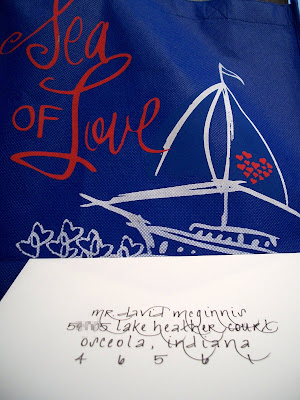 Sea
OF Love
mr. david mcginnis
lake heather court
osceola, indiana
4 6 5 6 1